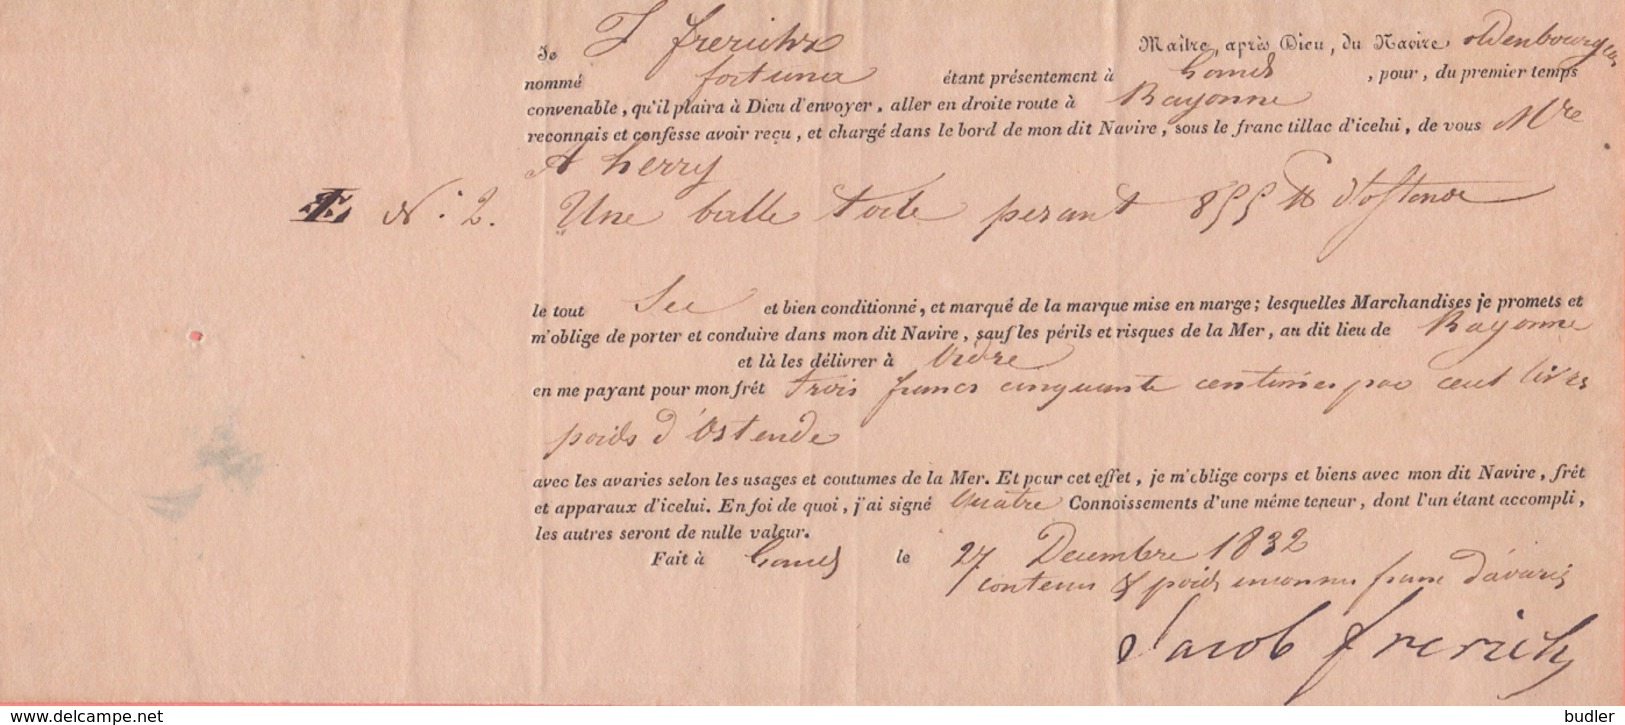 Je J Frerichs Maître, après Dieu, du Navire, oldenbourgeois
nommé fortuna étant présentement à Gand , pour, du premier temps
convenable, qu'il plaira à Dieu d'envoyer, aller en droite route à Bayonne
reconnais et confesse avoir reçu, et chargé dans le bord de mon dit Navire, sous le franc tillac d'icelui, de vous Mre
A herry
N. 2. Une balle toile pesant 855 ℔ d'ostende
le tout Sec et bien conditionné, et marqué de la marque mise en marge; lesquelles Marchandises je promets et
m'oblige de porter et conduire dans mon dit Navire, sauf les périls et risques de la Mer, au dit lieu de Bayonne
et là les délivrer à Ordre
en me payant pour mon frêt trois francs cinquante centimes par cent livres
poids d'Ostende
avec les avaries selon les usages et coutumes de la Mer. Et pour cet effet, je m'oblige corps et biens avec mon dit Navire, frêt
et apparaux d'icelui. En foi de quoi, j'ai signé Quatre Connoissements d'une même teneur, dont l'un étant accompli,
les autres seront de nulle valeur.
Fait à Gand le 27 Decembre 1832
contenu & poids inconnu franc d'avaries
Jacob Frerichs
www.delcampe.net
budler